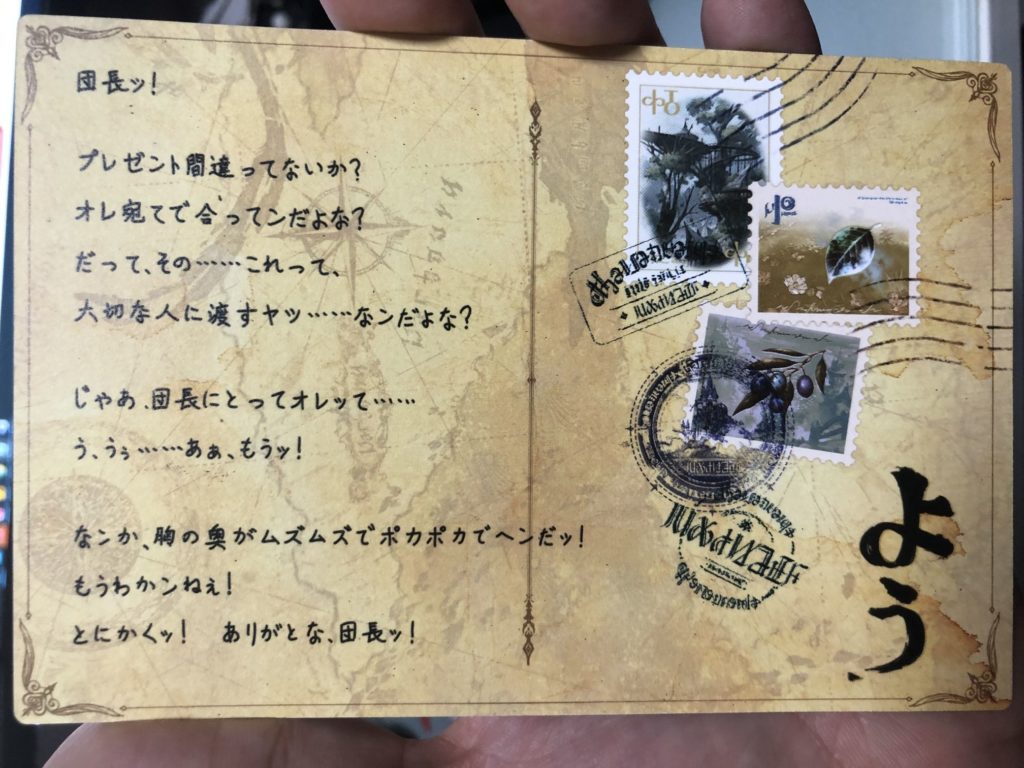 団長ッ!
プレゼント間違ってないか?
オレ宛てで合ってンだよな?
だって、その……これって、
大切な人に渡すヤツ……なンだよな?
じゃあ、団長にとってオレッて……
う、うぅ……あぁ、もうッ!
なンか、胸の奥がムズムズでポカポカでヘンだッ!
もうわかンねぇ!
とにかくッ! ありがとな、団長ッ!
よう